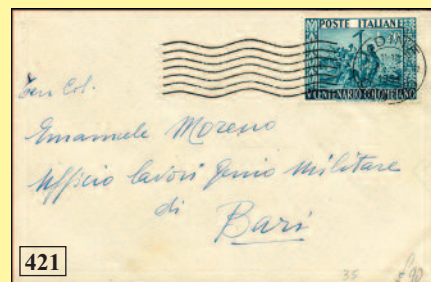 POSTE ITALIANE
V CENTENARIO COLOMBIANO
Ten Col.
Emanuele Moreno
Ufficio lavori Genio Militare
di
Bari
421
35
£90